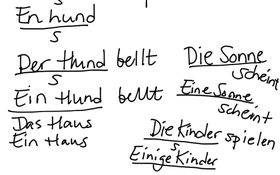 En hund
S
Der Hund bellt
S
Ein Hund bellt
Das Haus
Ein Haus
Die Sonne
scheint
Eine Sonne
scheint
Die Kinder spielen
S
Einige Kinder